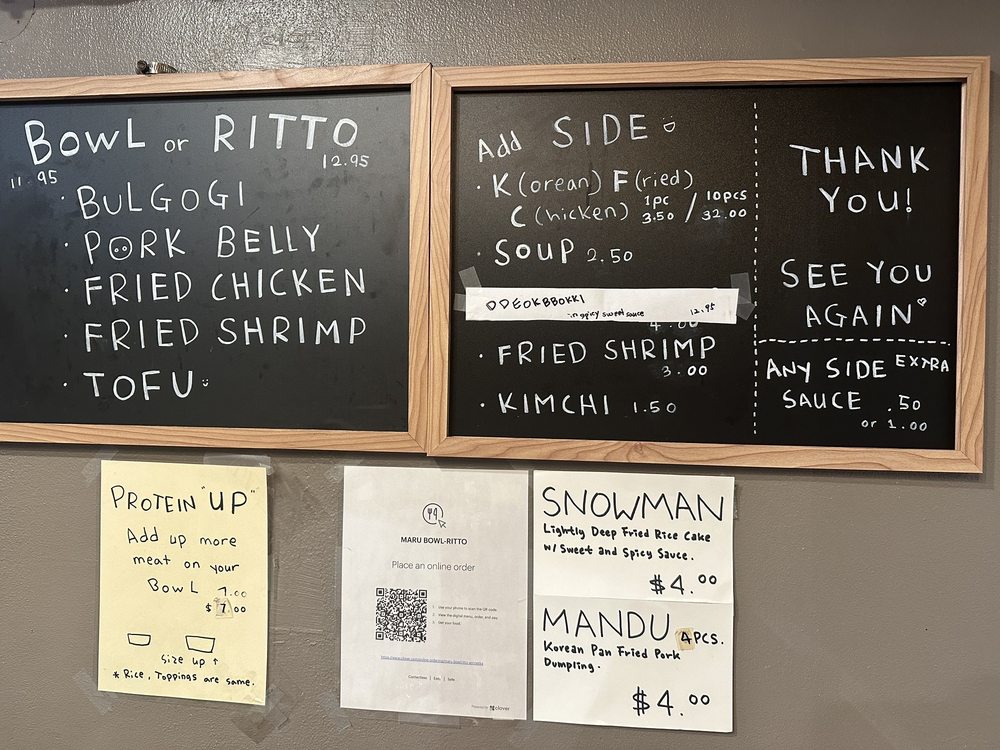 BOWL or RITTO
11.95 12.95
· BULGOGI
· PORK BELLY
· FRIED CHICKEN
· FRIED SHRIMP
· TOFU
Add SIDE
· K(orean) F(ried)
C(hicken) 1pc 3.50 / 10pcs 32.00
· SOUP 2.50
DDEOKBBOKKI
spicy sweet sauce 12.95
4.00
· FRIED SHRIMP
3.00
· KIMCHI 1.50
THANK
YOU!
SEE YOU
AGAIN
ANY SIDE EXTRA
SAUCE .50
or 1.00
PROTEIN "UP"
Add up more
meat on your
BOWL 7.00
$ 7.00
Size up ↑
* Rice, Toppings are same.
MARU BOWL-RITTO
Place an online order
1. Use your phone to scan the QR code
2. View the digital menu, order, and pay
3. Get your food.
Contactless | Easy | Safe
Powered by clover
SNOWMAN
Lightly Deep Fried Rice Cake
w/ Sweet and Spicy Sauce.
$4.00
MANDU 4PCS.
Korean Pan Fried Pork
Dumpling.
$4.00